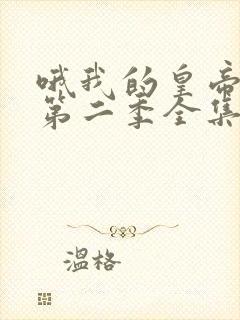 哦我的皇帝
第二季全集
温格